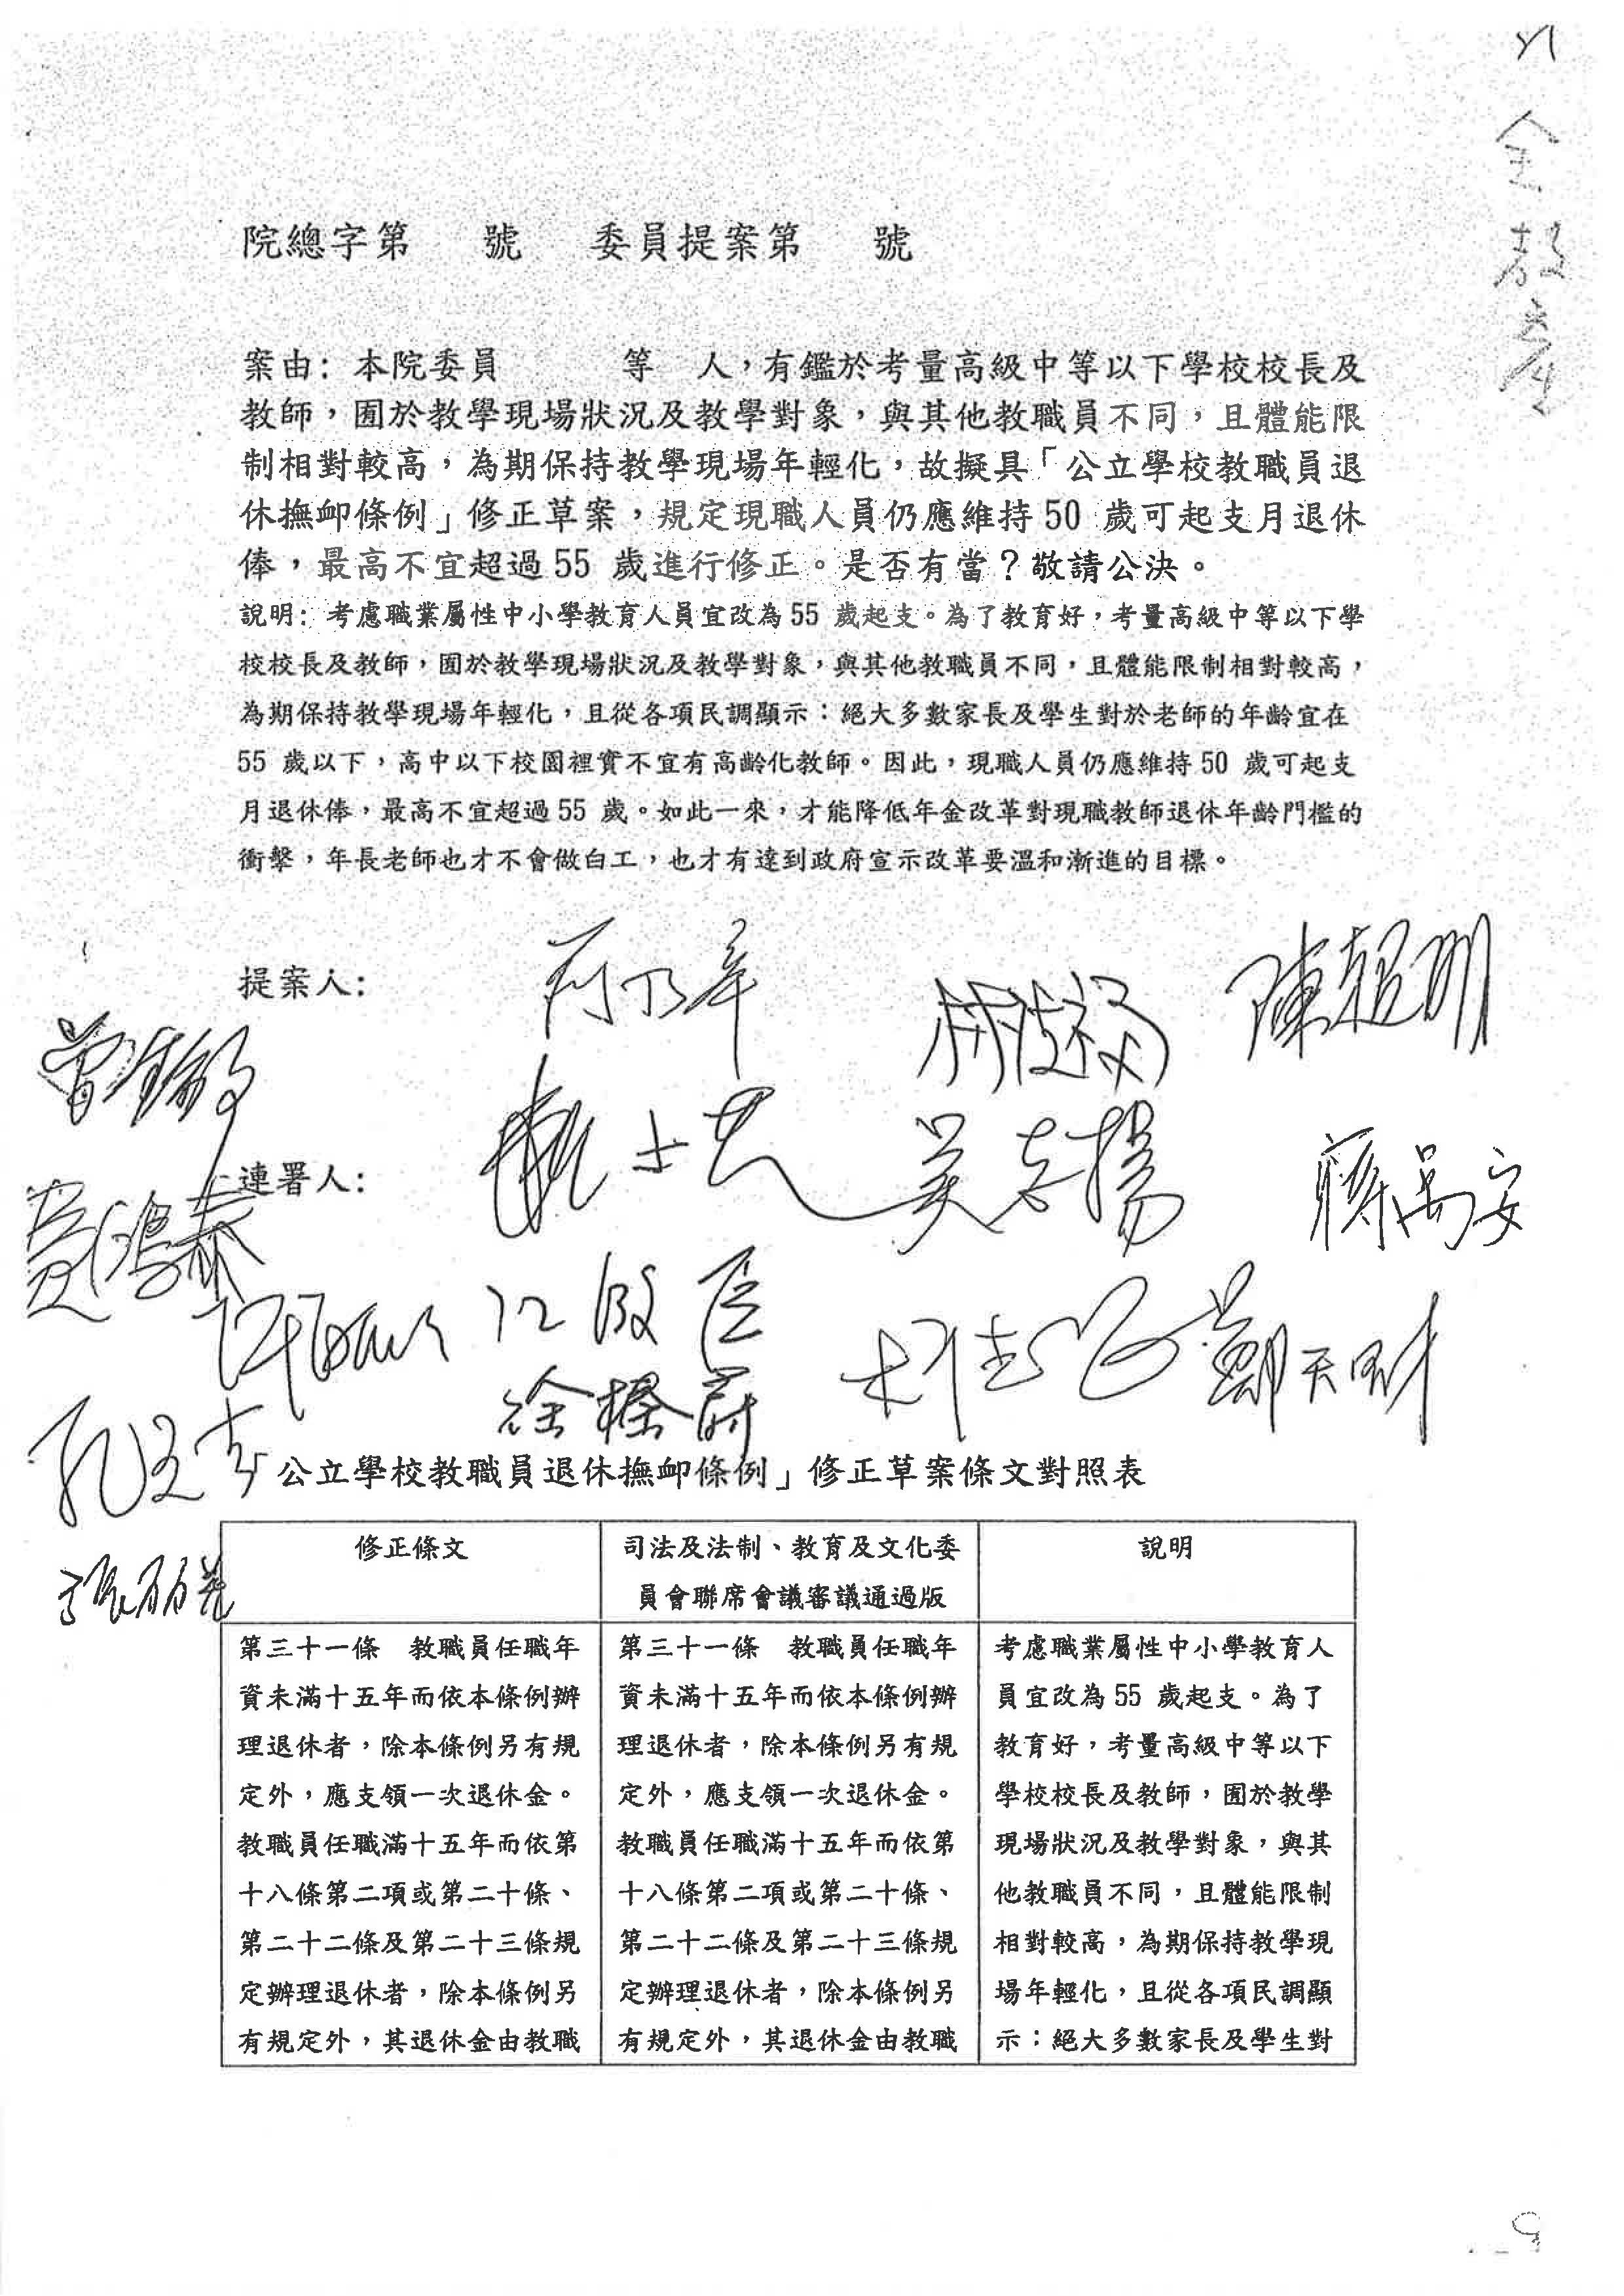 全教產
院總字第 號 委員提案第 號
案由：本院委員 等 人，有鑑於考量高級中等以下學校校長及
教師，囿於教學現場狀況及教學對象，與其他教職員不同，且體能限
制相對較高，為期保持教學現場年輕化，故擬具「公立學校教職員退
休撫卹條例」修正草案，規定現職人員仍應維持 50 歲可起支月退休
俸，最高不宜超過 55 歲進行修正。是否有當？敬請公決。
說明：考慮職業屬性中小學教育人員宜改為 55 歲起支。為了教育好，考量高級中等以下學
校校長及教師，囿於教學現場狀況及教學對象，與其他教職員不同，且體能限制相對較高，
為期保持教學現場年輕化，且從各項民調顯示：絕大多數家長及學生對於老師的年齡宜在
55 歲以下，高中以下校園裡實不宜有高齡化教師。因此，現職人員仍應維持 50 歲可起支
月退休俸，最高不宜超過 55 歲。如此一來，才能降低年金改革對現職教師退休年齡門檻的
衝擊，年長老師也才不會做白工，也才有達到政府宣示改革要溫和漸進的目標。
提案人：
柯志恩
陳超明
曾銘宗
連署人：
吳志揚
蔣萬安
費鴻泰
江啟臣
林德福
鄭天財
徐榛蔚
孔文吉
「公立學校教職員退休撫卹條例」修正草案條文對照表
修正條文
司法及法制、教育及文化委
員會聯席會議審議通過版
說明
第三十一條 教職員任職年
資未滿十五年而依本條例辦
理退休者，除本條例另有規
定外，應支領一次退休金。
教職員任職滿十五年而依第
十八條第二項或第二十條、
第二十二條及第二十三條規
定辦理退休者，除本條例另
有規定外，其退休金由教職
第三十一條 教職員任職年
資未滿十五年而依本條例辦
理退休者，除本條例另有規
定外，應支領一次退休金。
教職員任職滿十五年而依第
十八條第二項或第二十條、
第二十二條及第二十三條規
定辦理退休者，除本條例另
有規定外，其退休金由教職
考慮職業屬性中小學教育人
員宜改為 55 歲起支。為了
教育好，考量高級中等以下
學校校長及教師，囿於教學
現場狀況及教學對象，與其
他教職員不同，且體能限制
相對較高，為期保持教學現
場年輕化，且從各項民調顯
示：絕大多數家長及學生對